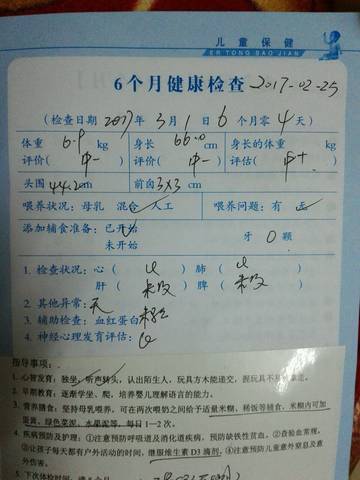 儿童保健
ER TONG BAO JIAN
6个月健康检查 2017-02-25
(检查日期 2017年 3月 1日 6个月零 4天)
体重 6.9 kg 身长 66.0 cm 身长的体重 kg
评价( 中- ) 评价( 中- ) 评估( 中+ )
头围 44.2cm 前囟 3X3 cm
喂养状况:母乳 混合 人工 喂养问题:有 无
添加辅食准备:已开始
未开始
牙 0 颗
1. 检查状况:心( ) 肺( )
肝( 未及 ) 脾( 未及 )
2. 其他异常:无
3. 辅助检查:血红蛋白
4. 神经心理发育评估:
指导事项:
1. 心智发育:独坐,听声转头,认出陌生人,玩具方木能递交,握玩具不易被拿走。
2. 早期教育:逐渐学坐、爬,培养婴儿理解语言的能力。
3. 营养膳食:坚持母乳喂养,可在两次喂奶之间给予适量米糊、稀饭等辅食,米糊内可加
蛋黄、绿色菜泥、水果泥等,每日1—2次。
4. 疾病预防及护理:①注意预防呼吸道及消化道疾病,预防缺铁性贫血。②查验血常规。
③让孩子每天都有户外活动的时间,继服维生素D3滴剂。④注意预防儿童意外窒息及意
外伤害。
5. 下次体检时间: